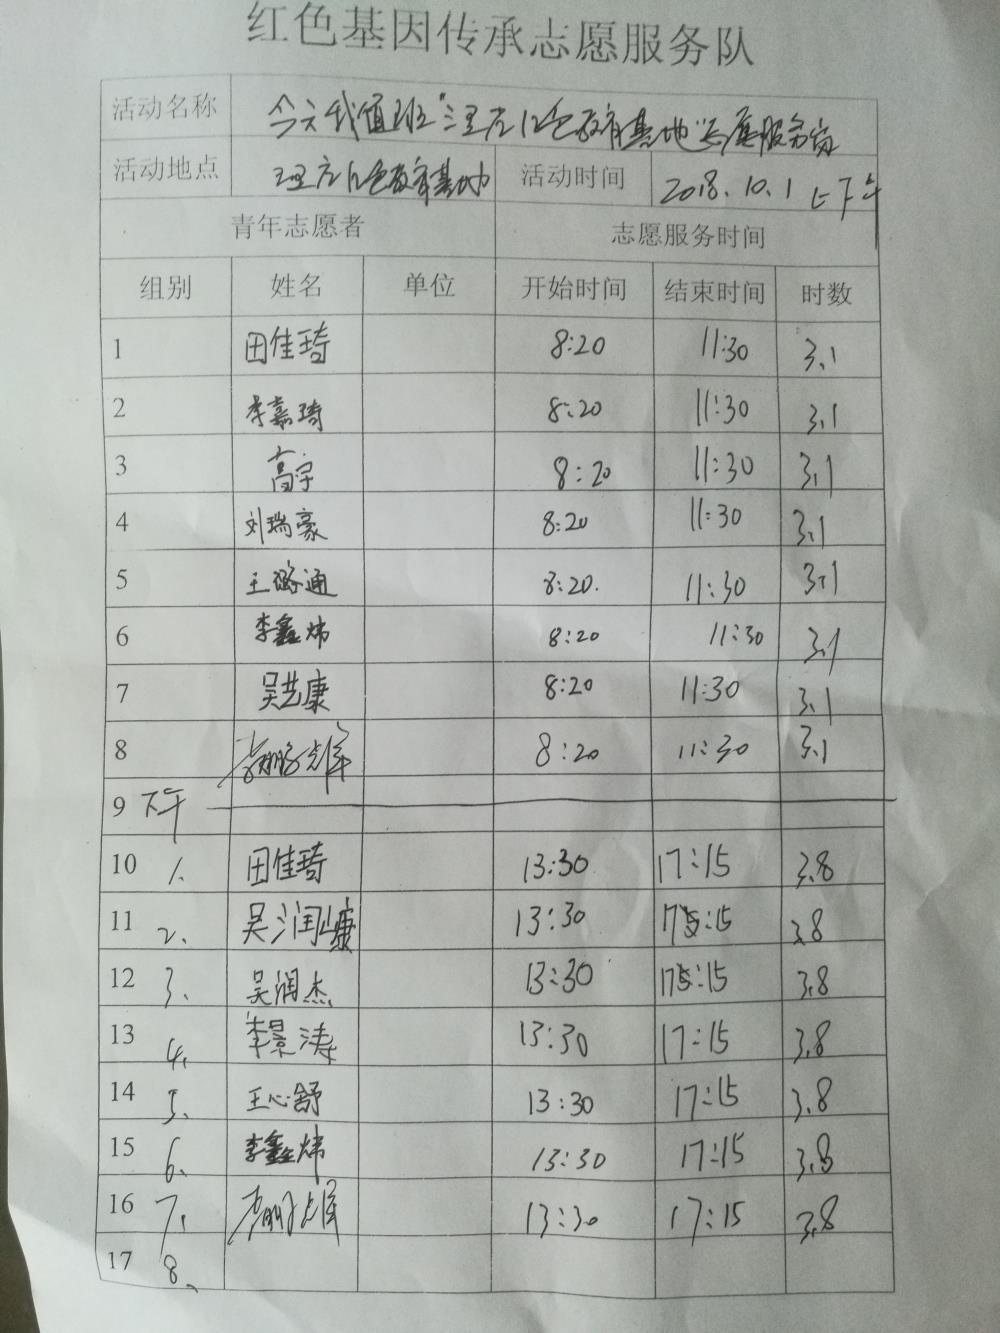 红色基因传承志愿服务队
活动名称 今天我值班"里庄红色教育基地"志愿服务岗
活动地点 里庄红色教育基地 活动时间 2018.10.1 上下午
青年志愿者 志愿服务时间
组别 姓名 单位 开始时间 结束时间 时数
1 田佳琦 8:20 11:30 3.1
2 李嘉琦 8:20 11:30 3.1
3 高宇 8:20 11:30 3.1
4 刘瑞豪 8:20 11:30 3.1
5 王璐通 8:20. 11:30 3.1
6 李鑫炜 8:20 11:30 3.1
7 吴艺康 8:20 11:30 3.1
8 8:20 11:30 3.1
9 下午
10 1. 田佳琦 13:30 17:15 3.8
11 2. 吴润康 13:30 17:15 3.8
12 3. 吴润杰 13:30 17:15 3.8
13 4. 李景涛 13:30 17:15 3.8
14 5. 王心舒 13:30 17:15 3.8
15 6. 李鑫炜 13:30 17:15 3.8
16 7. 13:30 17:15 3.8
17 8.